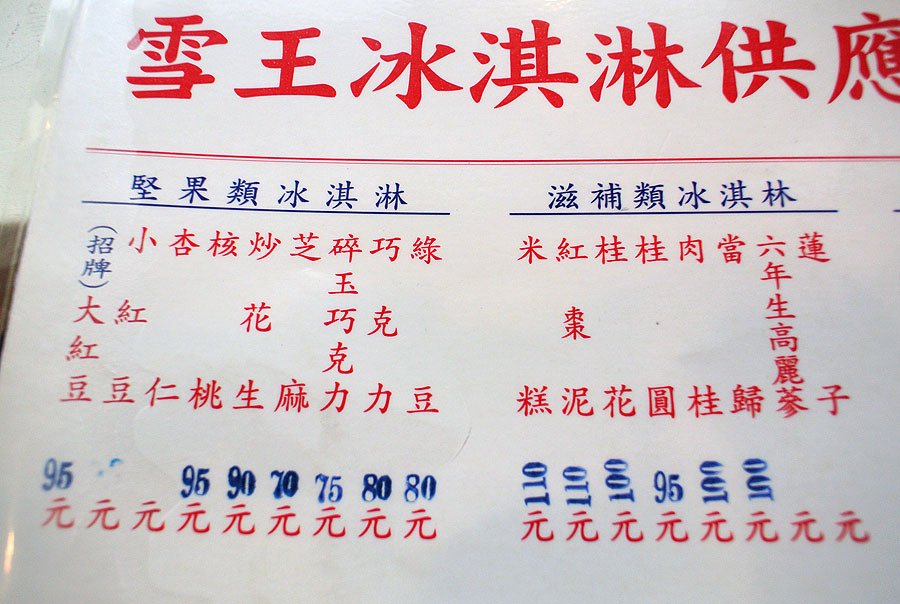 雪王冰淇淋供應
堅果類冰淇淋
(招牌)大紅豆 95元
小紅豆 元
杏仁 元
核桃 95元
炒花生 90元
芝麻 70元
碎玉巧克力 75元
巧克力 80元
綠豆 80元
滋補類冰淇林
米糕 110元
紅棗泥 110元
桂花 100元
桂圓 95元
肉桂 100元
當歸 100元
六年生高麗蔘 元
蓮子 元